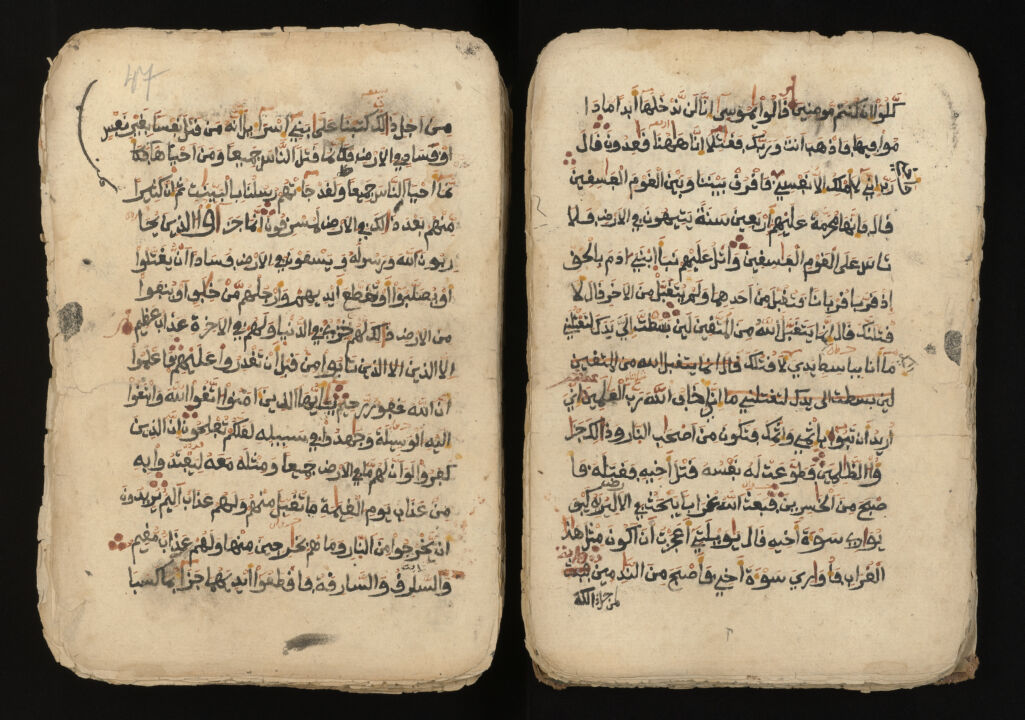 كلوا ان كنتم مومنين قالوا يموسى انا لن ندخلها ابدا ما دا
موا فيها فاذهب انت وربك فقتلا انا ههنا قعدون قال
رب اني لا املك الا نفسي فافرق بيننا وبين القوم الفسقين
قال فانها محرمة عليهم اربعين سنة يتيهون في الارض فلا
تاس على القوم الفسقين واتل عليهم نبا ابني ادم بالحق
اذ قربا قربانا فتقبل من احدهما ولم يتقبل من الاخر قال لا
قتلنك قال انما يتقبل الله من المتقين لين بسطت الي يدك لتقتلني
ما انا بباسط يدي لاقتلك قال انما يتقبل الله من المتقين
لين بسطت الى يدك لتقتلني ما اني اخاف الله رب العلمين اني
اريد ان تبوا باثمي واثمك فتكون من اصحب النار وذلك جزا
وا الظلمين فطوعت له نفسه قتل اخيه فقتله فا
صبح من الخسرين فبعث الله غرابا يبحث في الارض ليريه كيف
يواري سوءة اخيه قال يويلتى اعجزت ان اكون مثل هذا
الغراب فاواري سوءة اخي فاصبح من الندمين
من اجل ذلك
47
من اجل ذلك كتبنا على بني اسراءيل انه من قتل نفسا بغير نفس
او فساد في الارض فكانما قتل الناس جميعا ومن احياها فكا
نما احيا الناس جميعا ولقد جاءتهم رسلنا بالبينت ثم ان كثيرا
منهم بعد ذلك في الارض لمسرفون انما جزاوا الذين يحا
ربون الله ورسوله ويسعون في الارض فسادا ان يقتلوا
او يصلبوا او تقطع ايديهم وارجلهم من خلف او ينفوا
من الارض ذلك لهم خزي في الدنيا ولهم في الاخرة عذاب عظيم
الا الذين الا الذين تابوا من قبل ان تقدروا عليهم فاعلموا
ان الله غفور رحيم يايها الذين امنوا اتقوا الله وابتغوا
اليه الوسيلة وجهدوا في سبيله لعلكم تفلحون ان الذين
كفروا لو ان لهم ما في الارض جميعا ومثله معه ليفتدوا به
من عذاب يوم القيمة ما تقبل منهم ولهم عذاب اليم يريدون
ان يخرجوا من النار وما هم بخرجين منها ولهم عذاب مقيم
والسارق والسارقة فاقطعوا ايديهما جزاء بما كسبا